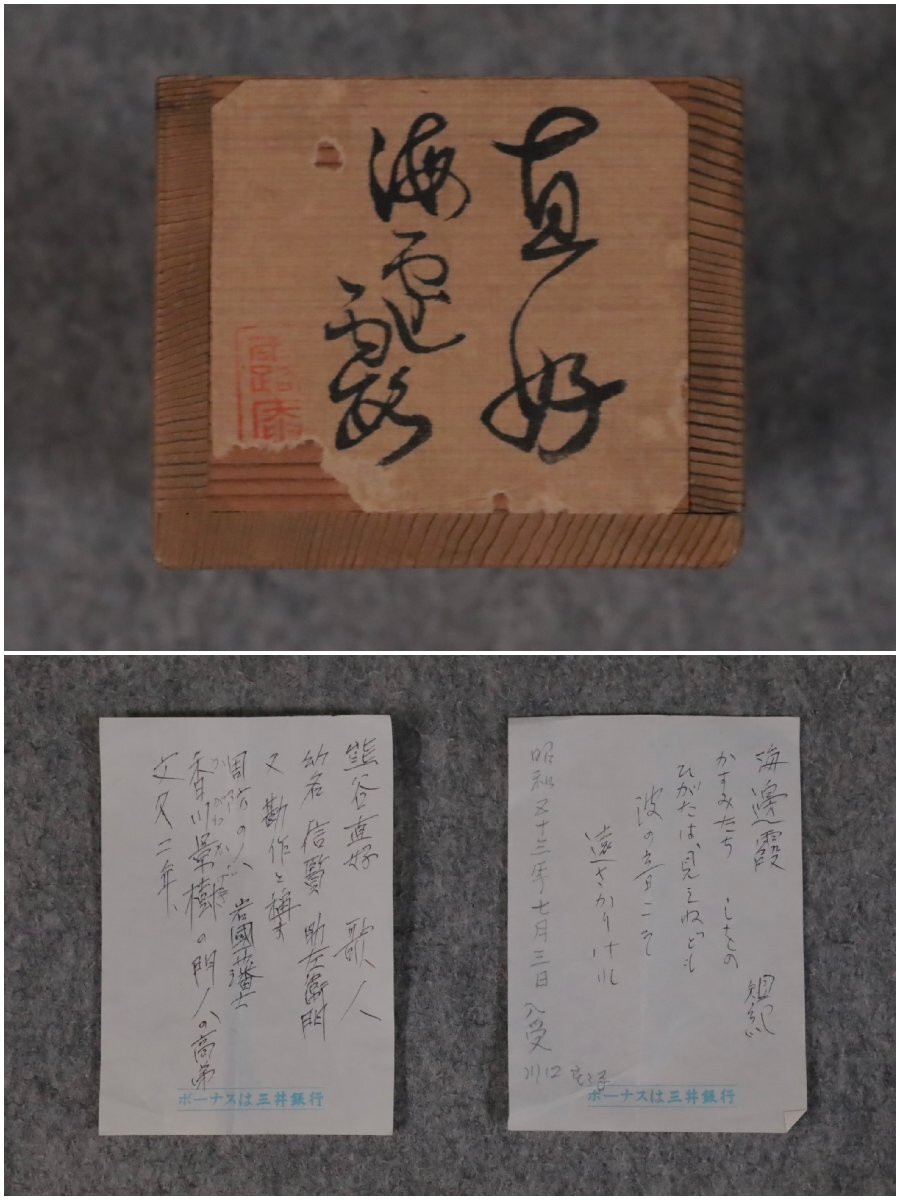 直好
海邊霞
熊谷直好 歌人
幼名 信賢 助左衛門
又 勘作と稱す
周防の人 岩國藩士
香川景樹の門人の高弟
文久二年、
ボーナスは三井銀行
海邊霞
かすみたち しほとの
ひがたは、見えねども
波の音こそ
遠さかりけれ
昭和五十三年七月三日 入受
川口
ボーナスは三井銀行